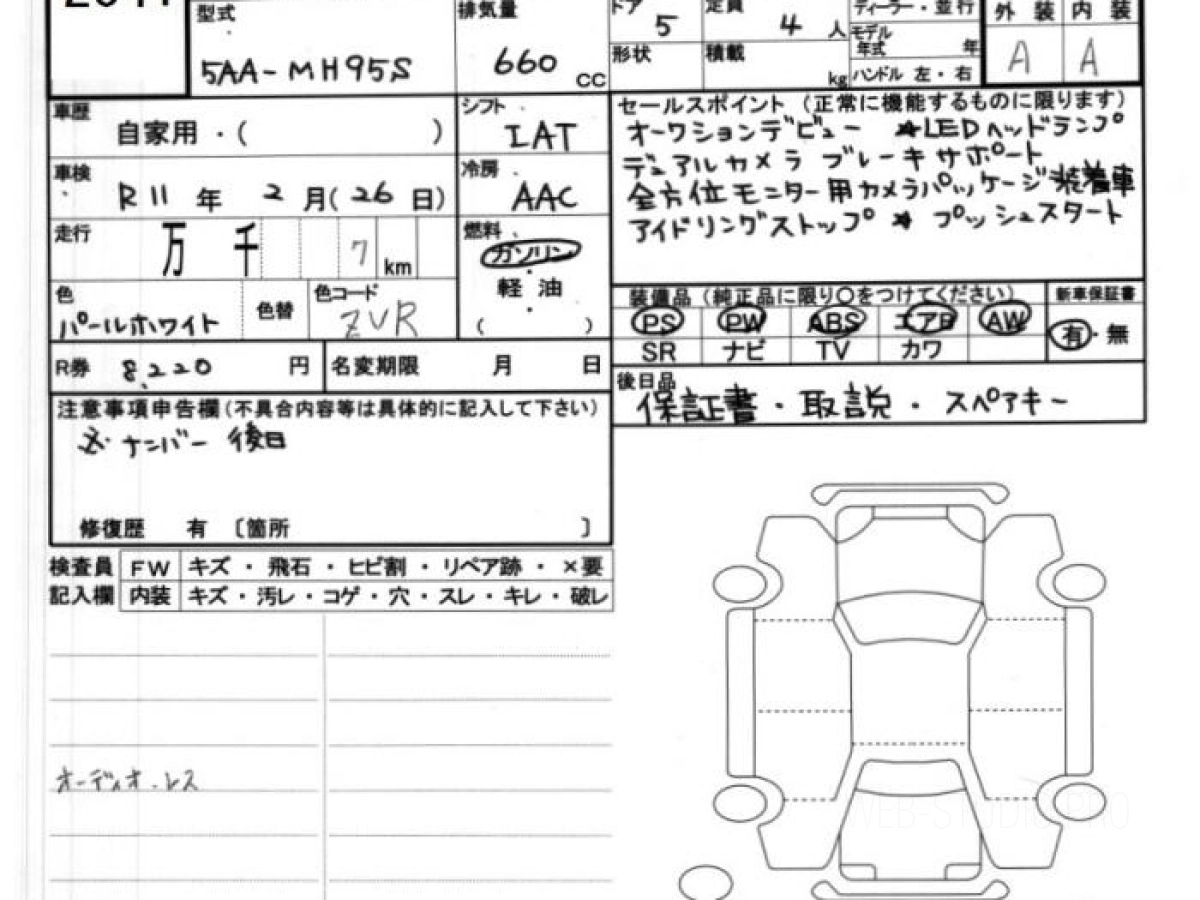 型式
排気量
ドア 5
定員 4 人
ディーラー・並行
外装 内装
5AA-MH95S
660 CC
形状
積載 kg
モデル年式 年
ハンドル 左・右
A A
車歴 自家用・( )
シフト IAT
セールスポイント (正常に機能するものに限ります)
オークションデビュー ★LEDヘッドランプ
デュアルカメラ ブレーキサポート
全方位モニター用カメラパッケージ装着車
アイドリングストップ ★ プッシュスタート
車検 R11年 2月(26日)
冷房 AAC
走行 万 千 7 km
燃料 ガソリン
軽油
( )
色 パールホワイト
色替
色コード ZVR
装備品 (純正品に限り○をつけてください)
新車保証書
PS PW ABS エアB AW
有・無
SR ナビ TV カワ
R券 8,220 円
名変期限 月 日
後日品
保証書・取説・スペアキー
注意事項申告欄(不具合内容等は具体的に記入して下さい)
ナンバー 後日
修復歴 有 〔箇所 〕
検査員記入欄
FW キズ・飛石・ヒビ割・リペア跡・×要
内装 キズ・汚レ・コゲ・穴・スレ・キレ・破レ
オーディオ・レス
WEB-STUDIO.PRO